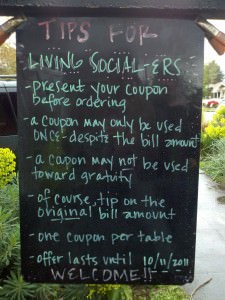 TIPS FOR
LIVING SOCIAL-ERS
-present your coupon
before ordering
-a coupon may only be used
ONCE-despite the bill amount
-a coupon may not be used
toward gratuity
-of course, tip on the
original bill amount
-one coupon per table
-offer lasts until 10/11/2011
WELCOME!!